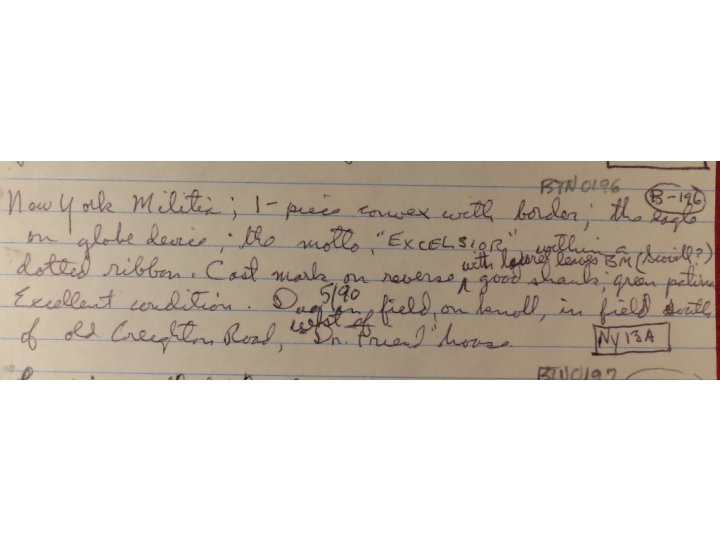 BTN 0196
New York Militia; 1-piece convex with border; the eagle B-196
on globe device; the motto, "EXCELSIOR" within a
dotted ribbon. Cast mark on reverse with laurel leaves BM (Scroll?) good shank; green patina
Excellent condition. Dug 5/90 on field, on knoll, in field south
of old Creighton Road, west of "Dr. Friend" house. NY13A
BTN0197